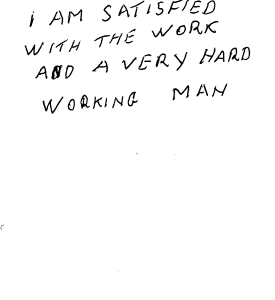 i AM SATISFIED
WITH THE WORK
AND A VERY HARD
WORKING MAN